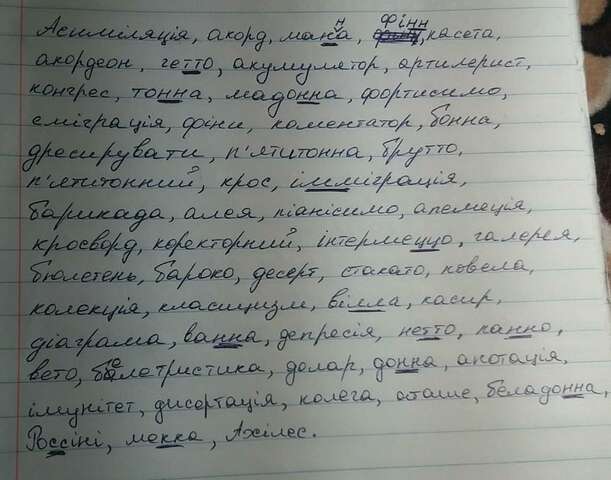 Асиміляція, акорд, манна, Фінн, касета,
акордеон, гетто, акумулятор, артилерист,
конгрес, тонна, мадонна, фортисимо,
еміграція, фіни, коментатор, бонна,
дресирувати, п'ятитонна, брутто,
п'ятитонний, крос, імміграція,
барикада, алея, піанісимо, апеляція,
кросворд, коректорний, інтермеццо, галерея,
бюлетень, бароко, десерт, стакато, новела,
колекція, класицизм, вілла, касир,
діаграма, ванна, депресія, нетто, панно,
вето, белетристика, долар, донна, анотація,
імунітет, дисертація, колега, аташе, беладонна,
Россіні, мекка, Ахілес.